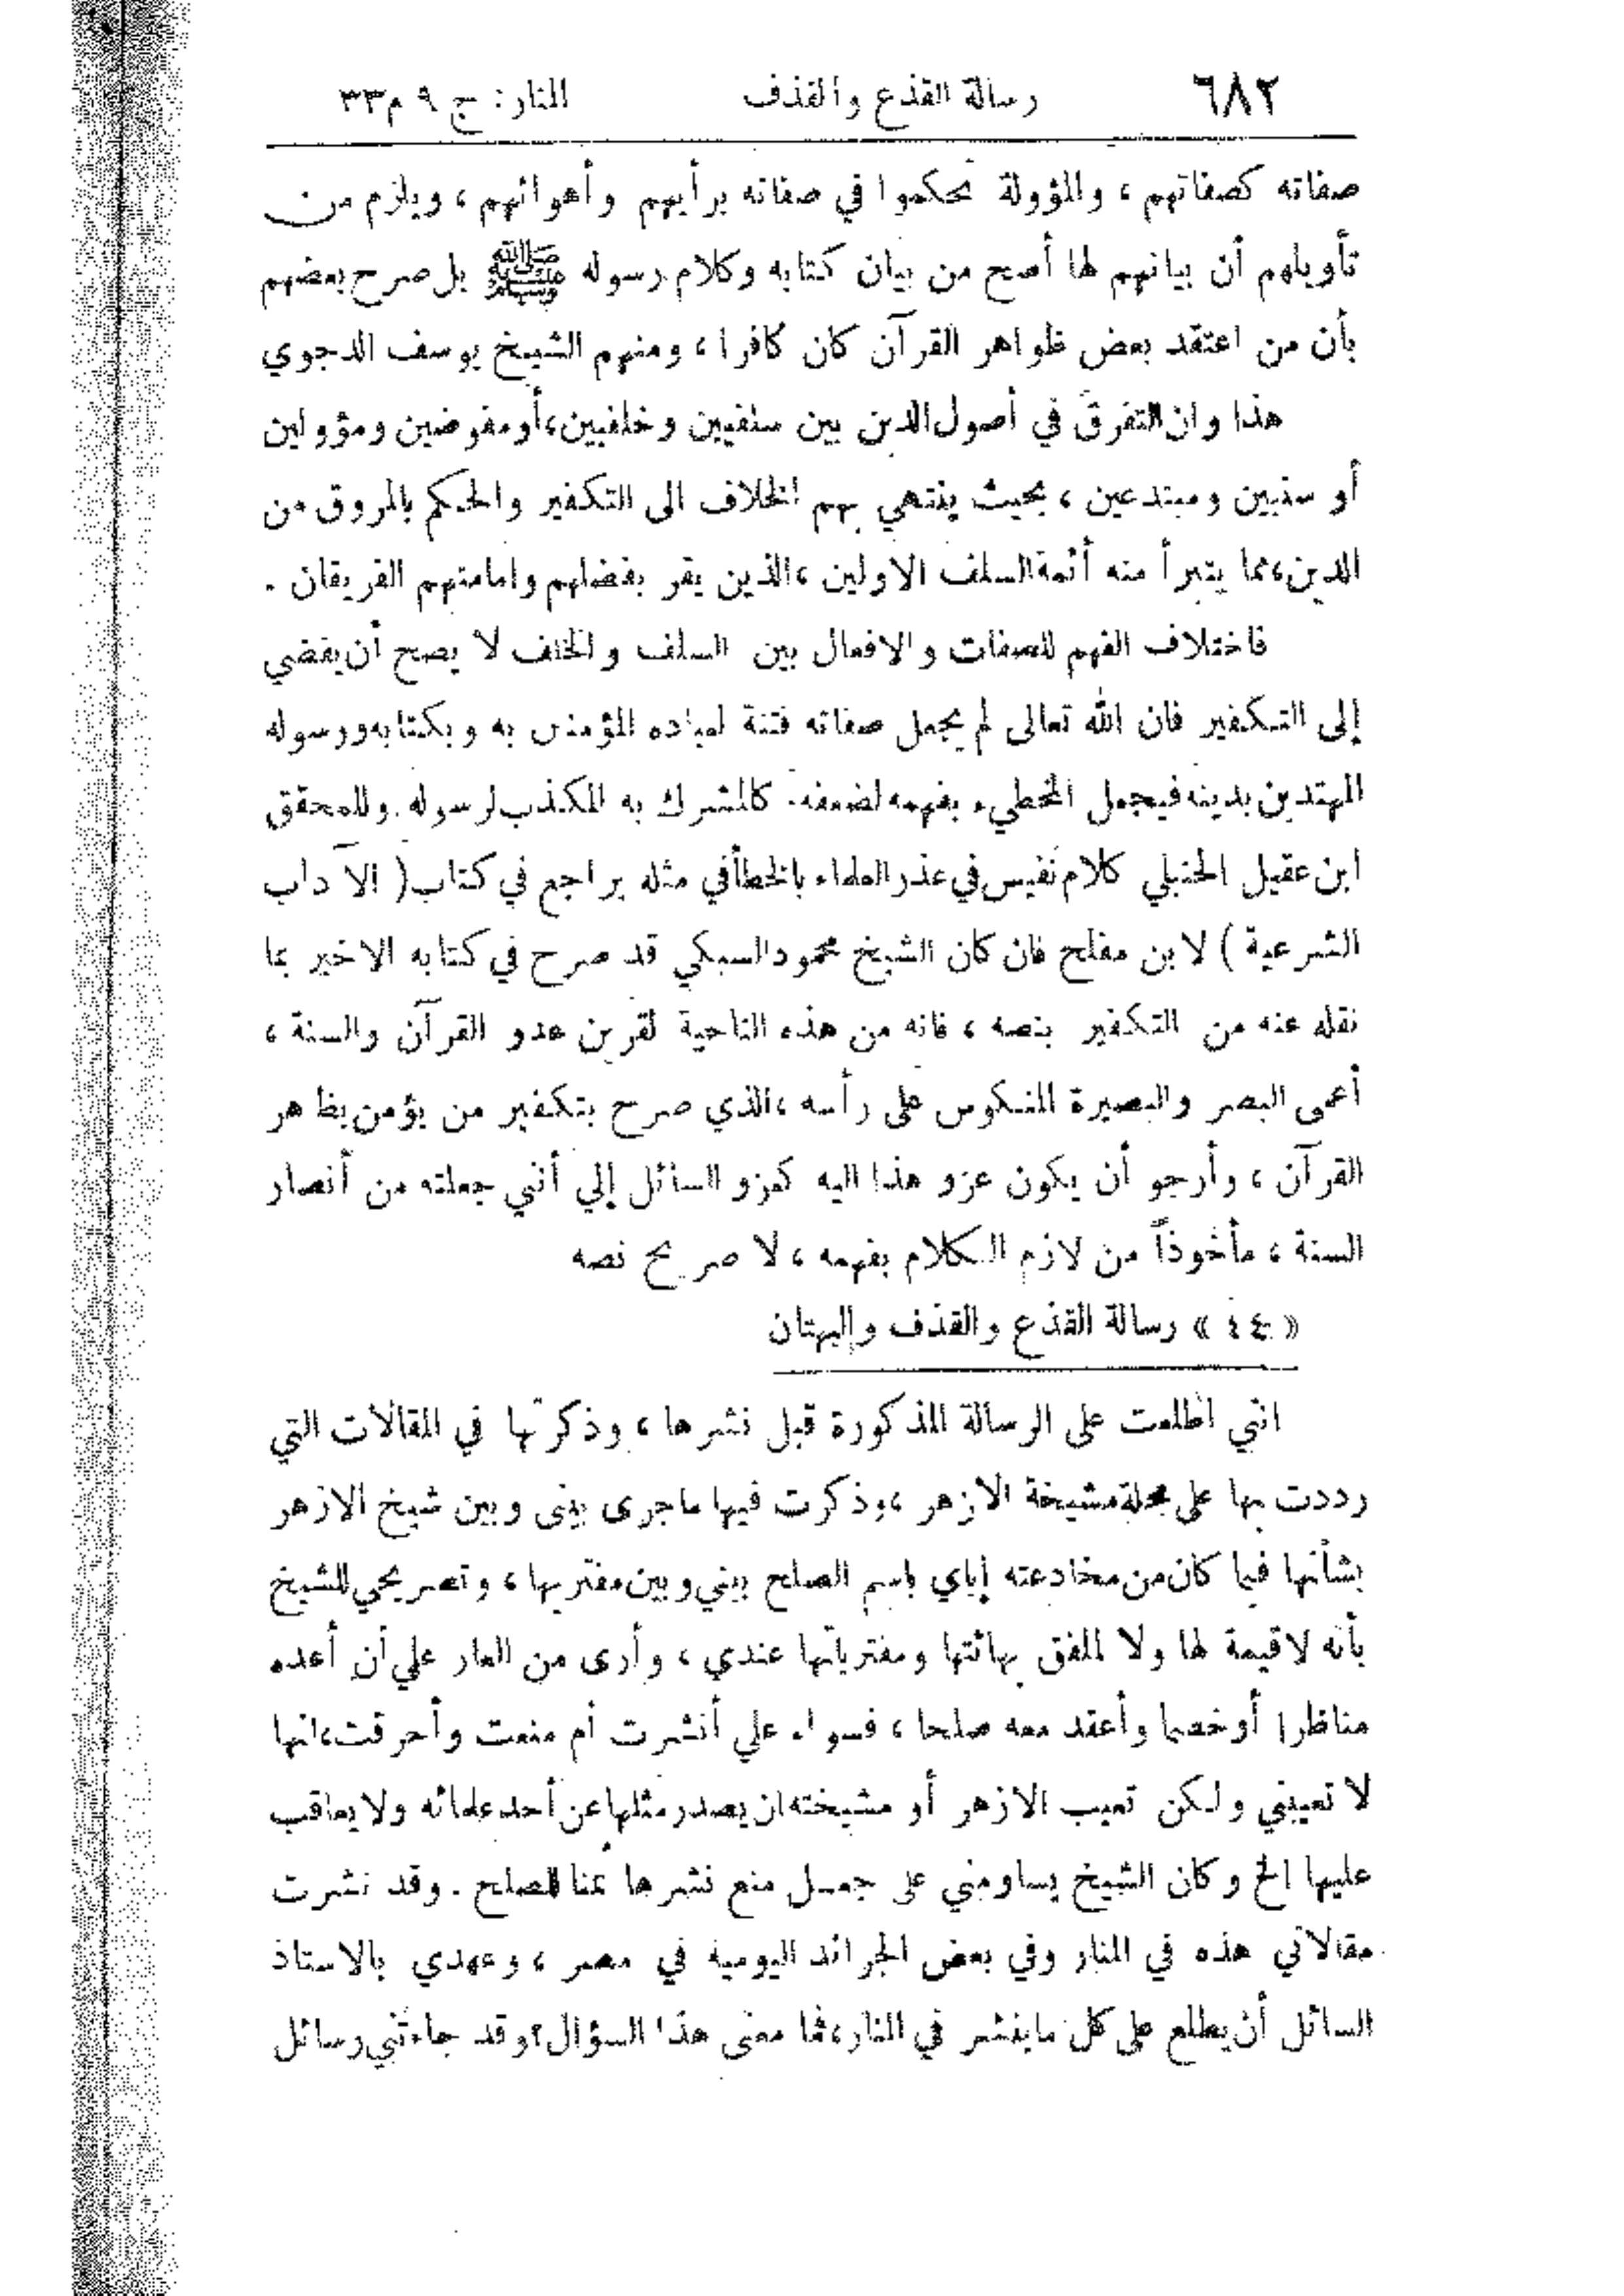 ٦٨٢ رسالة القذع والقذف المنار: ج ٩ م ٣٣
صفاته كصفاتهم ، والمؤولة تحكموا في صفاته برأيهم وأهوائهم ، ويلزم من
تأويلهم أن بيانهم لها أصح من بيان كتابه وكلام رسوله ﷺ بل صرح بعضهم
بأن من اعتقد بعض ظواهر القرآن كان كافرا ، ومنهم الشيخ يوسف الدجوي
هذا وان التفرق في أصول الدين بين سلفيين وخلفيين، أو مفوضين ومؤولين
أو سنيين ومبتدعين ، بحيث ينتهي بهم الخلاف الى التكفير والحكم بالمروق من
الدين، مما يتبرأ منه أئمة السلف الاولين ، الذين يقر بفضلهم وامامتهم الفريقان .
فاختلاف الفهم للصفات والافعال بين السلف والخلف لا يصح أن يفضي
إلى التكفير فان الله تعالى لم يجعل صفاته فتنة لعباده المؤمنين به وبكتابه ورسوله
المهتدين بدينه فيجعل المخطيء بفهمه لضعفه كالمشرك به المكذب لرسوله . وللمحقق
ابن عقيل الحنبلي كلام نفيس في عذر العلماء بالخطأ في مثله يراجع في كتاب ( الآداب
الشرعية ) لابن مفلح فان كان الشيخ محمود السبكي قد صرح في كتابه الاخير بما
نقله عنه من التكفير بنصه ، فانه من هذه الناحية لقرين عدو القرآن والسنة ،
أعمى البصر والبصيرة المنكوس على رأسه ، الذي صرح بتكفير من يؤمن بظاهر
القرآن ، وأرجو أن يكون عزو هذا اليه كعزو السائل إلي أنني جعلته من أنصار
السنة ، مأخوذاً من لازم الكلام بفهمه ، لا صريح نصه
« ٤٤ » رسالة القذع والقذف والبهتان
انني اطلعت على الرسالة المذكورة قبل نشرها ، وذكرتها في المقالات التي
رددت بها على مجلة مشيخة الازهر ، وذكرت فيها ما جرى بيني وبين شيخ الازهر
بشأنها فيما كان من مخادعته إياي باسم الصلح بيني وبين مفتريها ، وتصريحي للشيخ
بأنه لا قيمة لها ولا لملفق بهائتها ومفترياتها عندي ، وأرى من العار علي أن أعده
مناظرا أو خصما وأعقد معه صلحا ، فسواء علي أنشرت أم منعت وأحرقت، انها
لا تعيبني ولكن تعيب الازهر أو مشيخته ان يصدر مثلها عن أحد علمائه ولا يعاقب
عليها الخ وكان الشيخ يساومني على جعل منع نشرها ثمنا للصلح . وقد نشرت
مقالاتي هذه في المنار وفي بعض الجرائد اليومية في مصر ، وعهدي بالاستاذ
السائل أن يطلع على كل ما ينشر في المنار، فما معنى هذا السؤال؟ وقد جاءتني رسائل